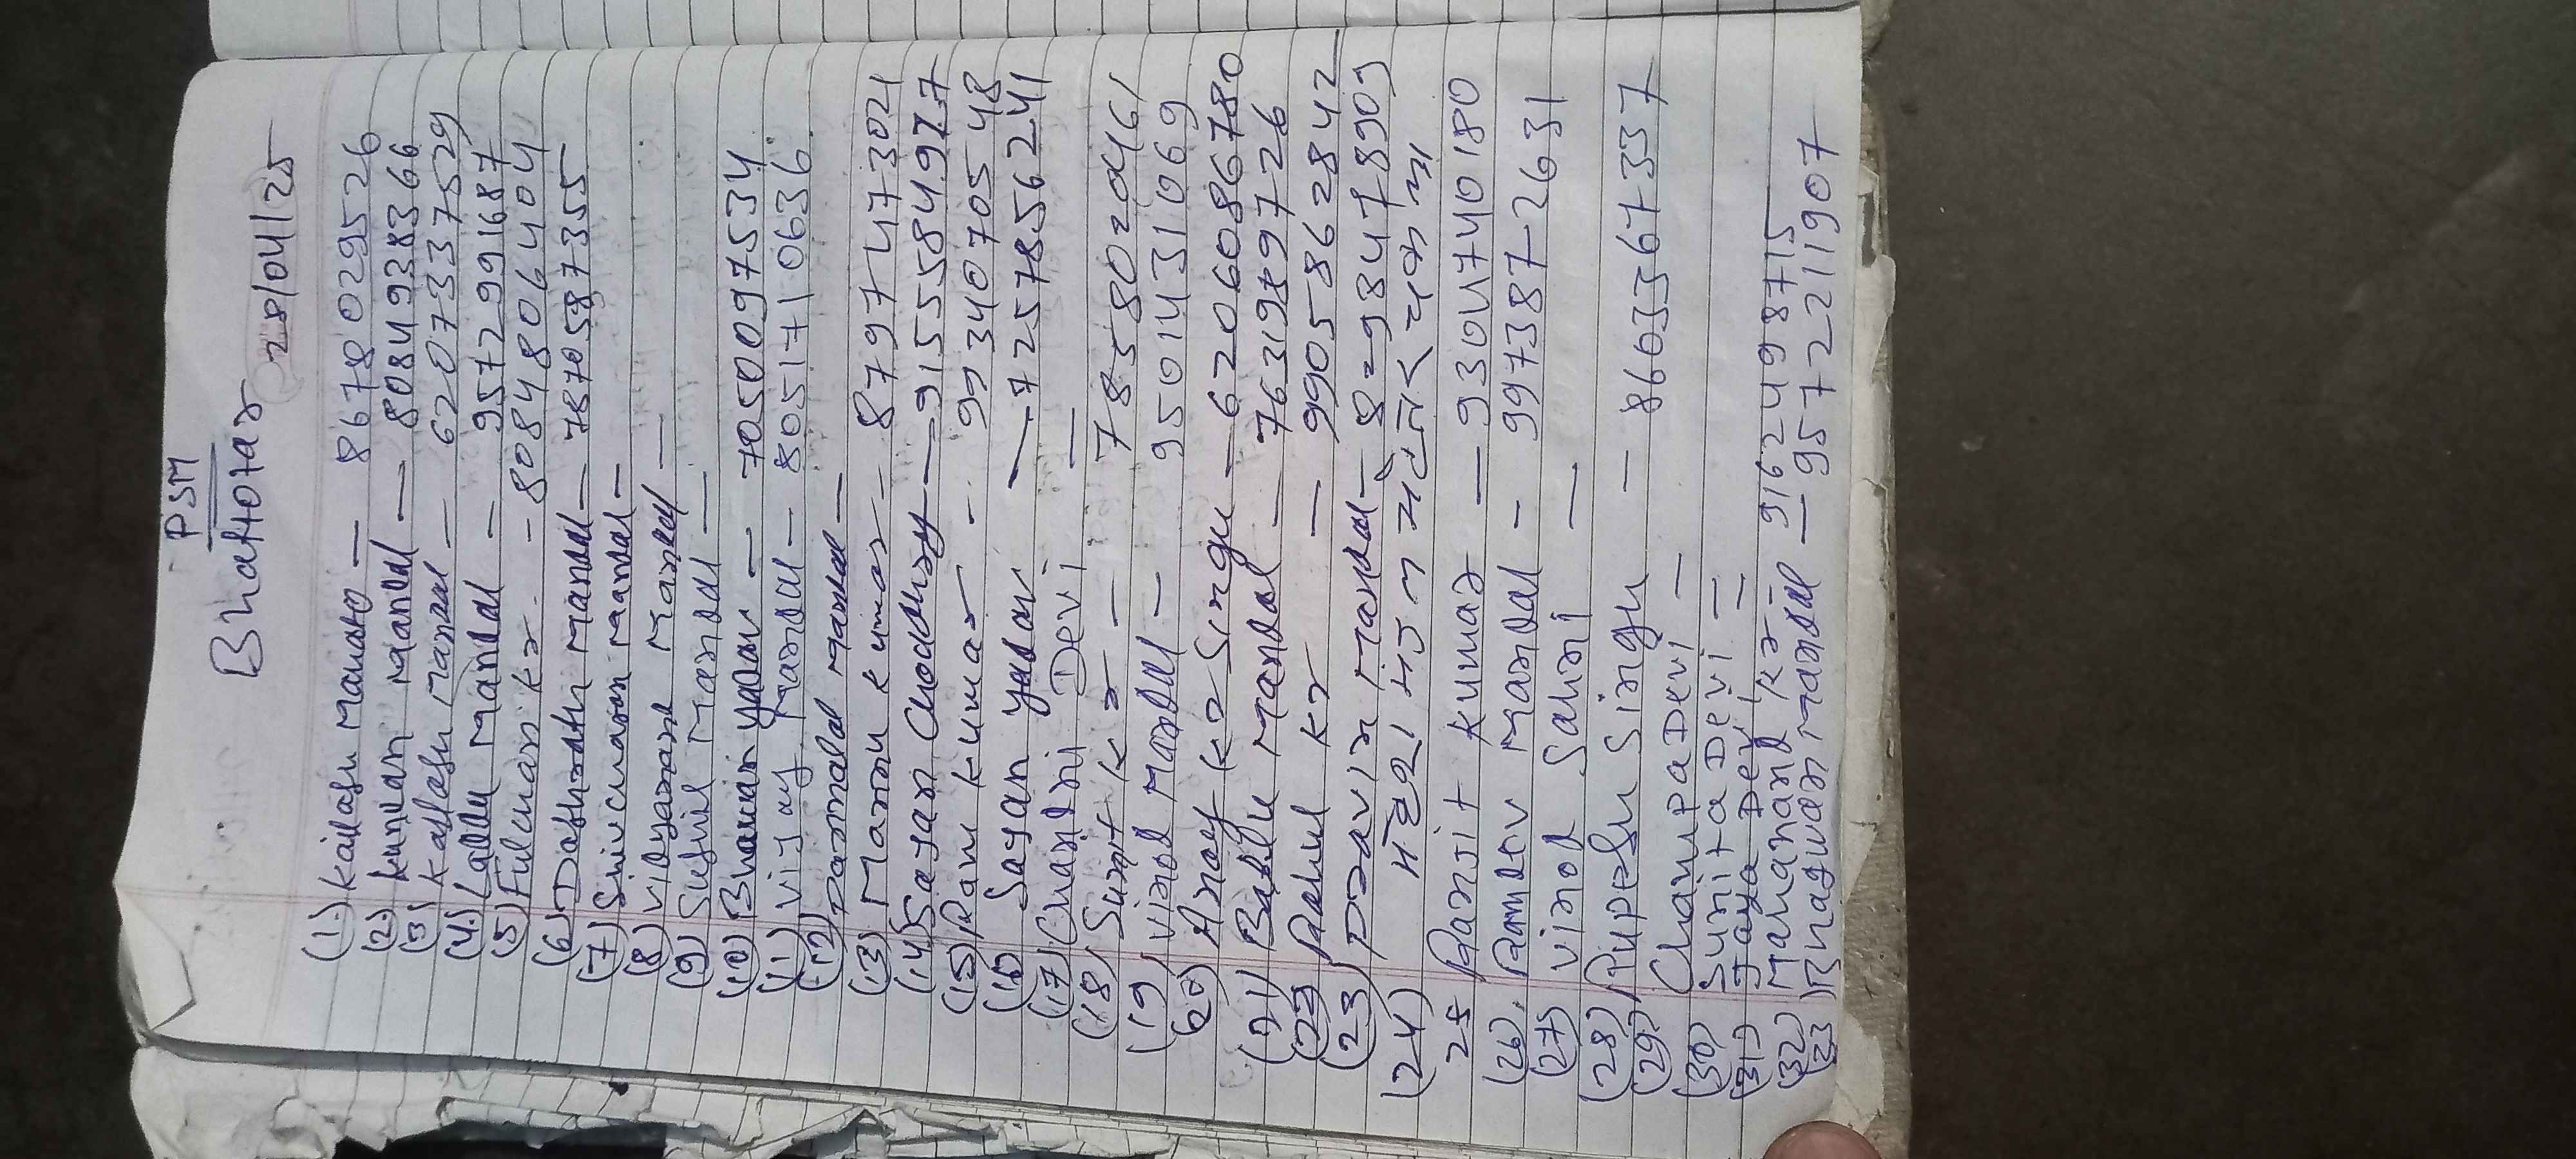 PSM
Bhattotar 28/04/25
(1) Kailash Mahato — 8678029526
(2) Kundan Mandal — 8084938366
(3) Kailash Mandal — 6207337529
(4) Lallu Mandal — 9572991687
(5) Fulchan Kr. - 8084806404
(6) Dashrath Mandal — 7870587355
(7) Shivcharan Mandal —
(8) Vidyanand Mandal —
(9) Sushil Mandal —
(10) Bhawan yadav — 7050097534
(11) Vijay Mandal — 8051710636
(12) Parmald Mandal —
(13) Mannu Kumar — 8797473021
(14) Sajan Chodhury — 9155584977
(15) Ram Kumar - 9334070548
(16) Sajan yadav — 7257856241
(17) Chandni Devi —
(18) Sumit Kr — 7858020461
(19) Vinod Mandal — 9501431069
(20) Anoy Kr Singh — 6206086780
(21) Bablu Mandal — 7631989726
(22) Rahul Kr — 9905862842
(23) Pravin Mandal — 8=9334718909
(24)
25 Ranjit Kumar — 9304740180
(26) Ramdev Mandal - 997387-2631
(27) Vinod Sahni —
(28) Puppshu Singh — 8603367337
(29) Champa Devi —
(30) Sunita Devi —
(31) Jaya Devi =
(32) Mahanand Kr 9162498715
(33) Bhagwan Mandal — 9572211907